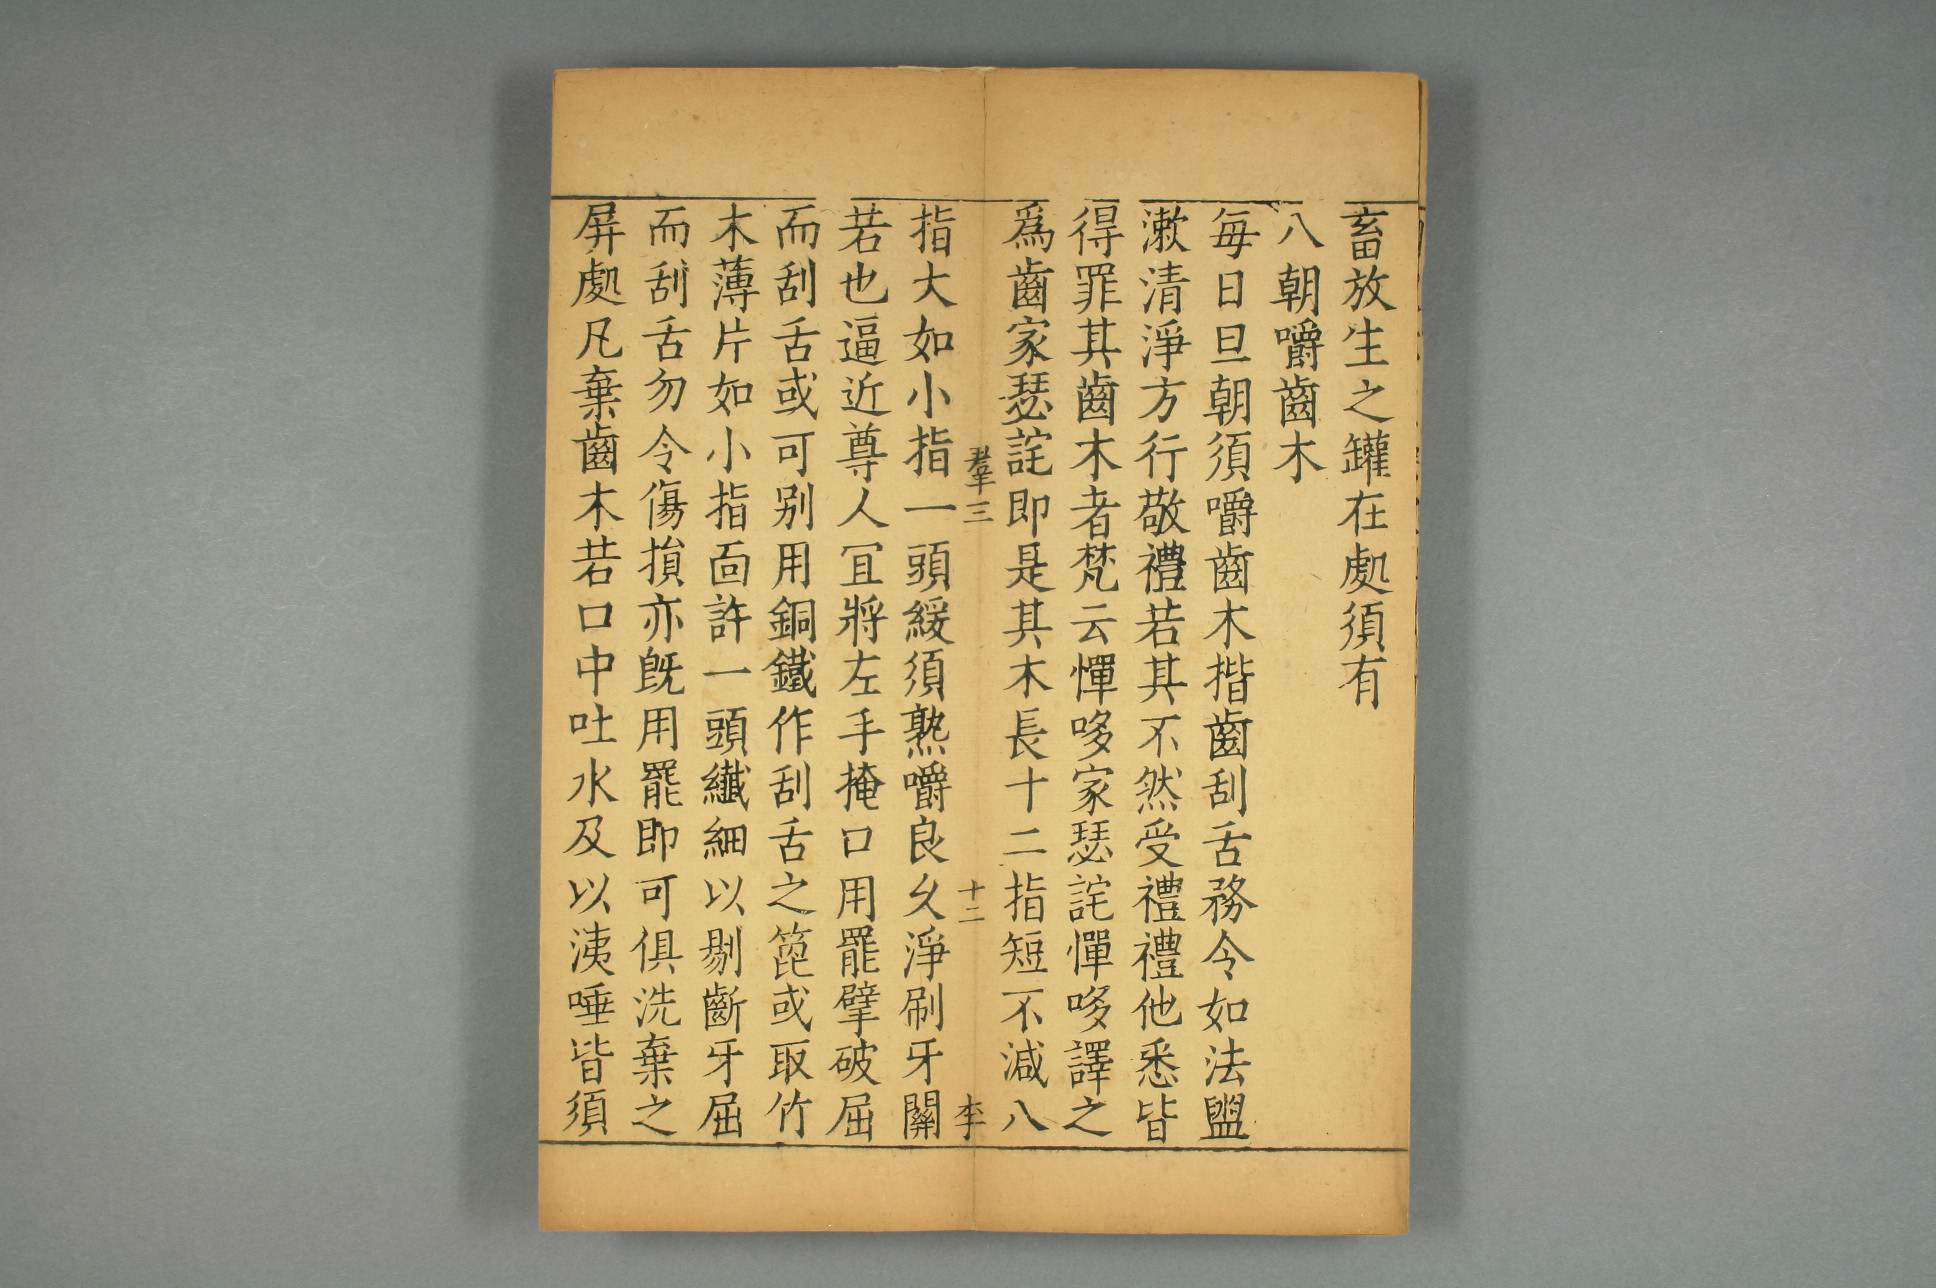 畜放生之罐在處須有
八朝嚼齒木
每日旦朝須嚼齒木揩齒刮舌務令如法盥
漱清淨方行敬禮若其不然受禮禮他悉皆
得罪其齒木者梵云憚哆家瑟詫憚哆譯之
爲齒家瑟詫即是其木長十二指短不減八
羣三 十二 李
指大如小指一頭緩須熟嚼良久淨刷牙關
若也逼近尊人冝將左手掩口用罷擘破屈
而刮舌或可别用銅鐵作刮舌之箆或取竹
木薄片如小指面許一頭纖細以剔斷牙屈
而刮舌勿令傷損亦旣用罷即可俱洗棄之
屏處凡棄齒木若口中吐水及以洟唾皆須